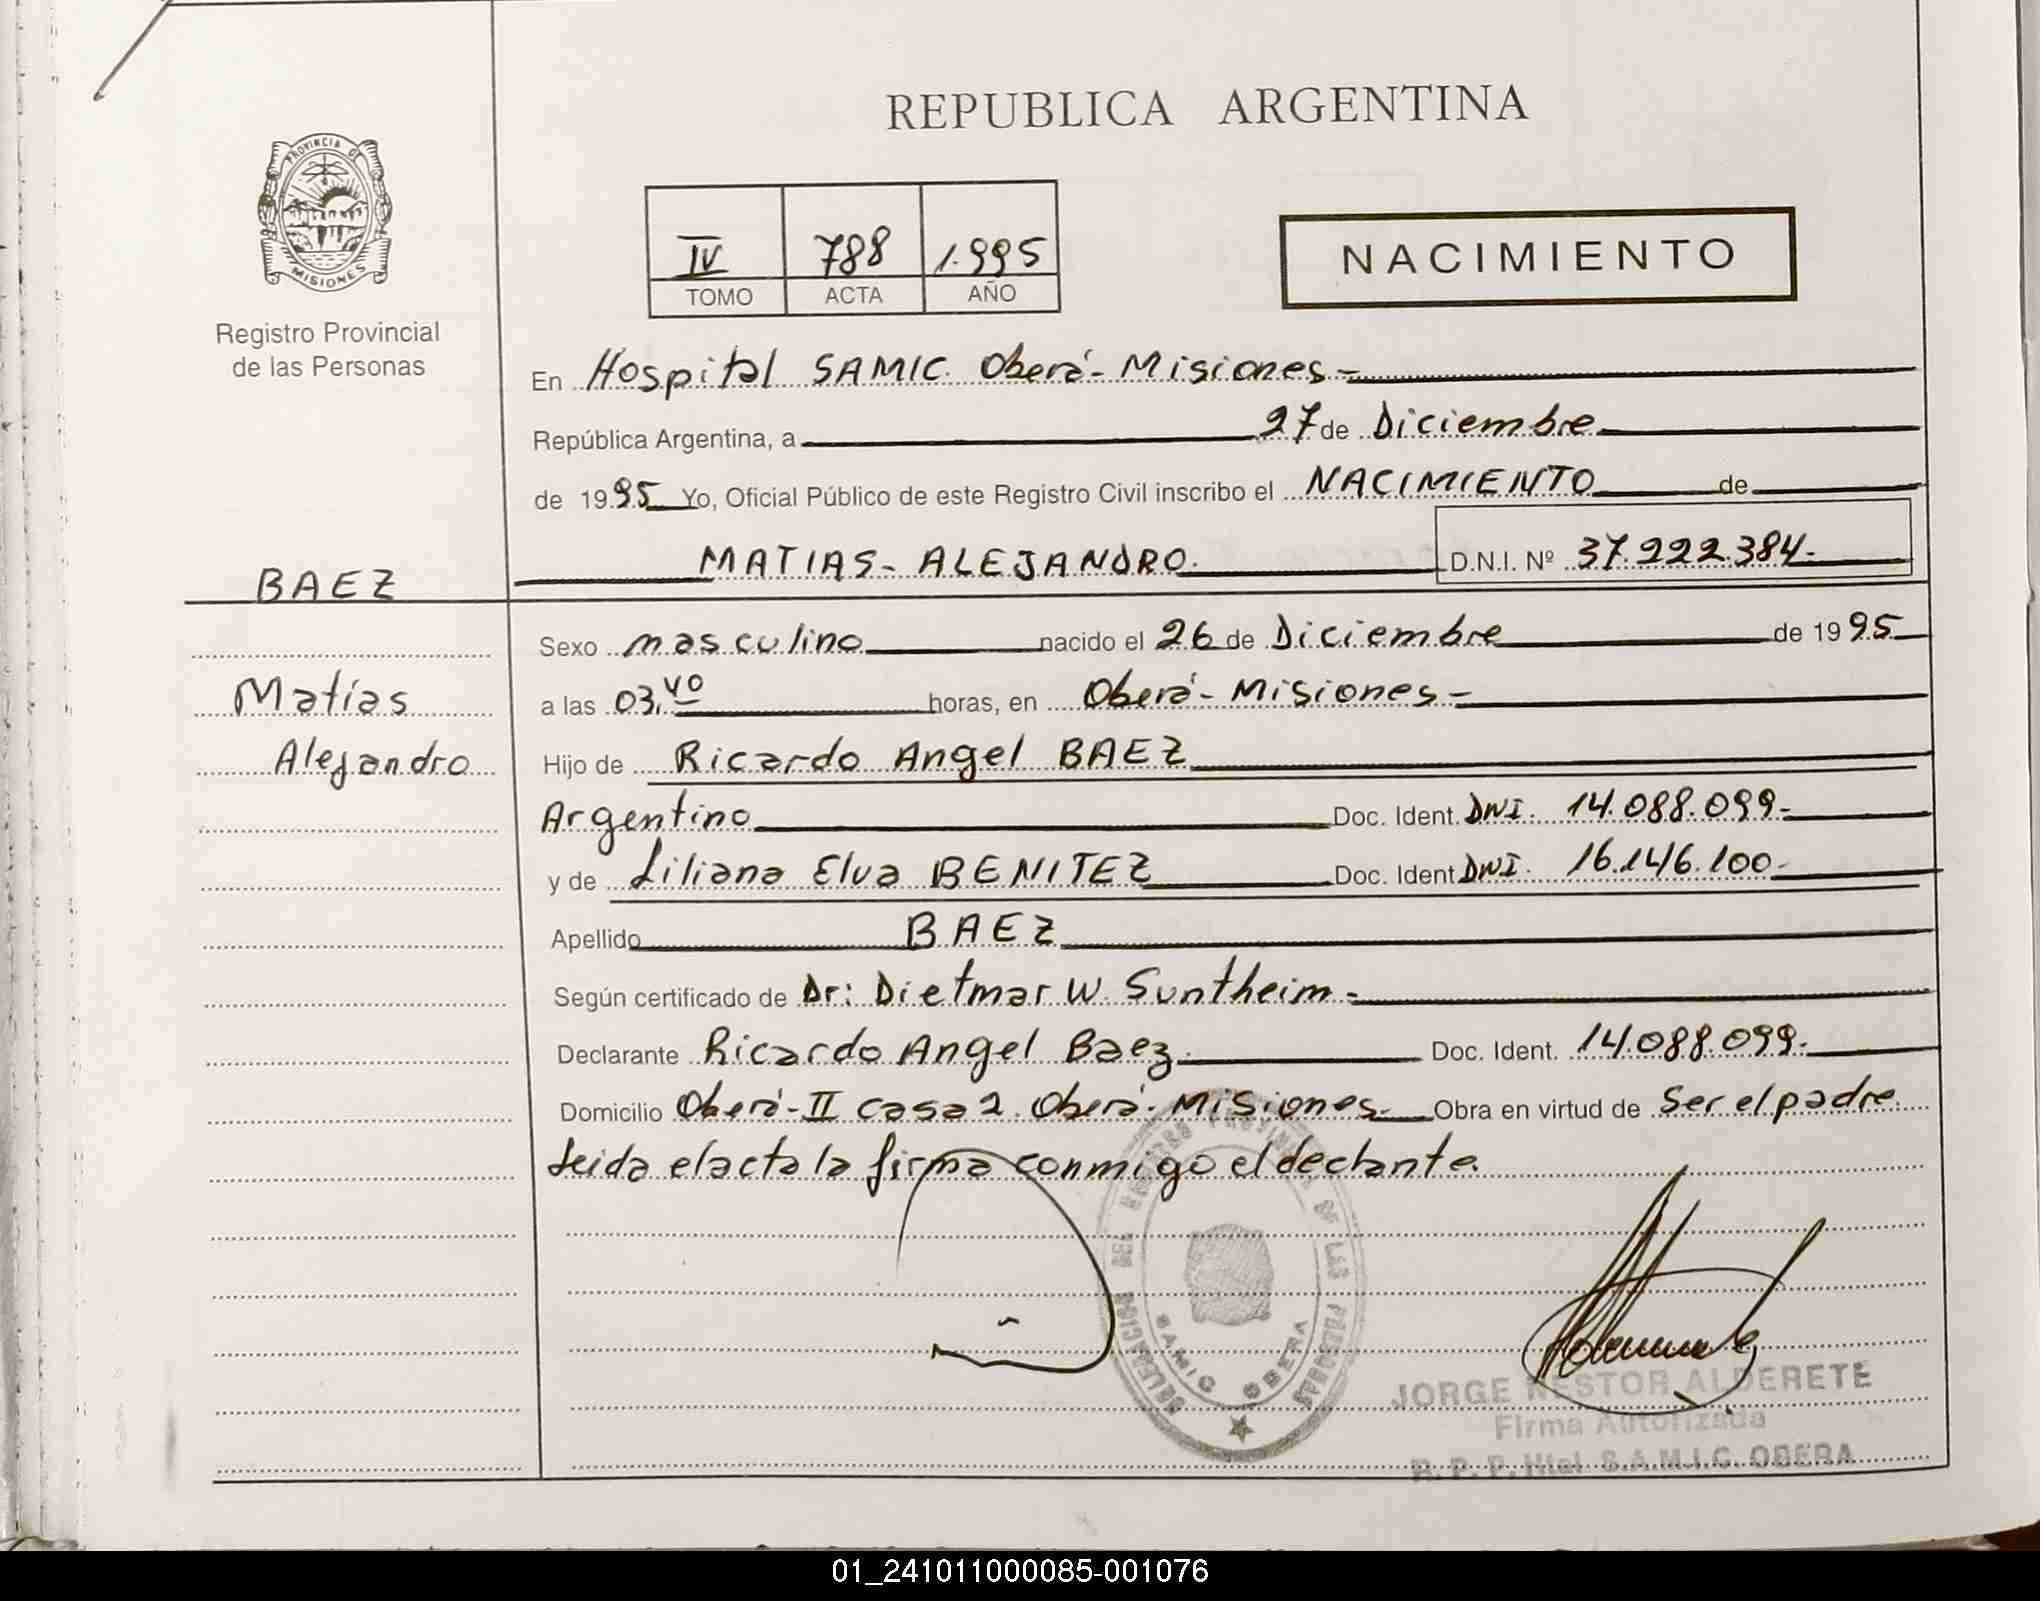 REPUBLICA ARGENTINA
PROVINCIA DE
MISIONES
Registro Provincial
de las Personas
IV 788 1.995
TOMO ACTA AÑO
NACIMIENTO
En Hospital SAMIC Oberá - Misiones -
República Argentina, a 27 de Diciembre
de 1995 Yo, Oficial Público de este Registro Civil inscribo el NACIMIENTO de
MATIAS - ALEJANDRO. D.N.I. Nº 37.222.384.-
BAEZ
Matías
Alejandro
Sexo masculino nacido el 26 de Diciembre de 1995
a las 03,40 horas, en Oberá - Misiones -
Hijo de Ricardo Angel BAEZ
Argentino Doc. Ident. DNI. 14.088.099.-
y de Liliana Elva BENITEZ Doc. Ident DNI. 16.146.100.-
Apellido BAEZ
Según certificado de Dr: Dietmar W. Suntheim.-
Declarante Ricardo Angel Baez. Doc. Ident. 14.088.099.-
Domicilio Oberá - II casa 2. Oberá - Misiones.- Obra en virtud de Ser el padre.
Leida el acta la firma conmigo el declante.
DELEGACION DEL REGISTRO PROVINCIAL DE LAS PERSONAS
SAMIC OBERA
JORGE NESTOR ALDERETE
Firma Autorizada
R. P. P. Htal S.A.M.I.C. OBERA
01_241011000085-001076